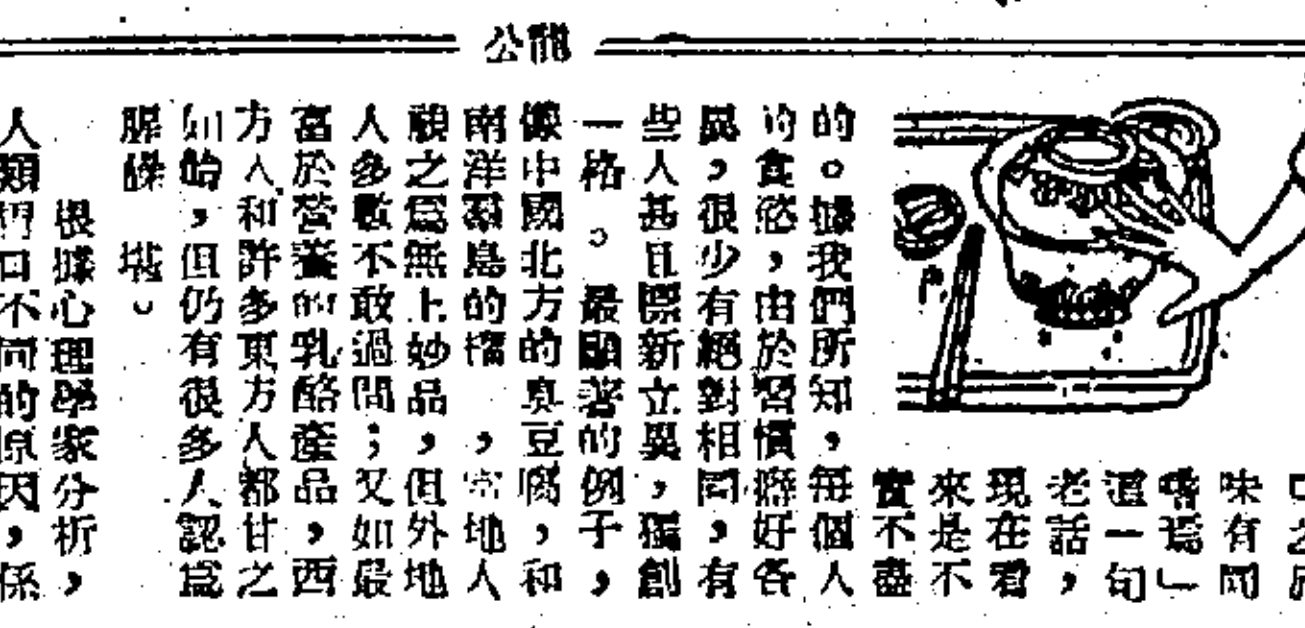 公
口之
味有同
嗜焉」
這一句
老話,
現在看
來是不
實不盡
的。據我們所知,每個人
的食慾,由於習慣癖好各
異,很少有絕對相同,有
些人甚且標新立異,獨創
一格。最顯著的例子,
像中國北方的臭豆腐,和
南洋羣島的榴 ,當地人
視之爲無上妙品,但外地
人多數不敢過問;又如最
富於營養的乳酪產品,西
方人和許多東方人都甘之
如飴,但仍有很多人認爲
腥臊 堪。
根據心理學家分析,
人類 口不同的原因,係